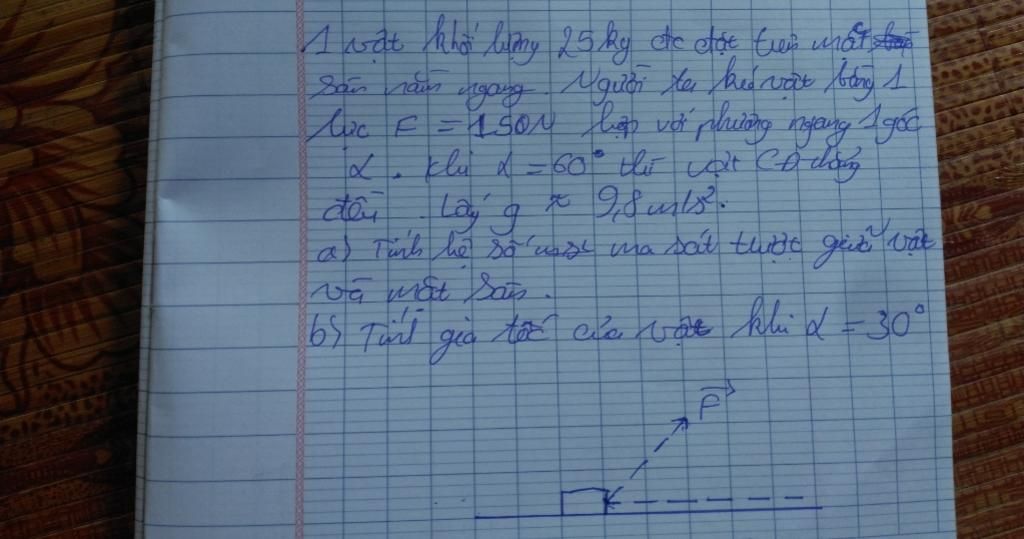 1 vật khối lượng 25kg đc đặt trên mặt
sàn nằm ngang. Người ta kéo vật bằng 1
lực F = 150N hợp với phương ngang 1 góc
α. Khi α = 60° thì vật CĐ thẳng
đều. Lấy g ≈ 9,8m/s².
a) Tính hệ số ma sát trượt giữa vật
và mặt sàn.
b) Tính gia tốc của vật khi α = 30°
F